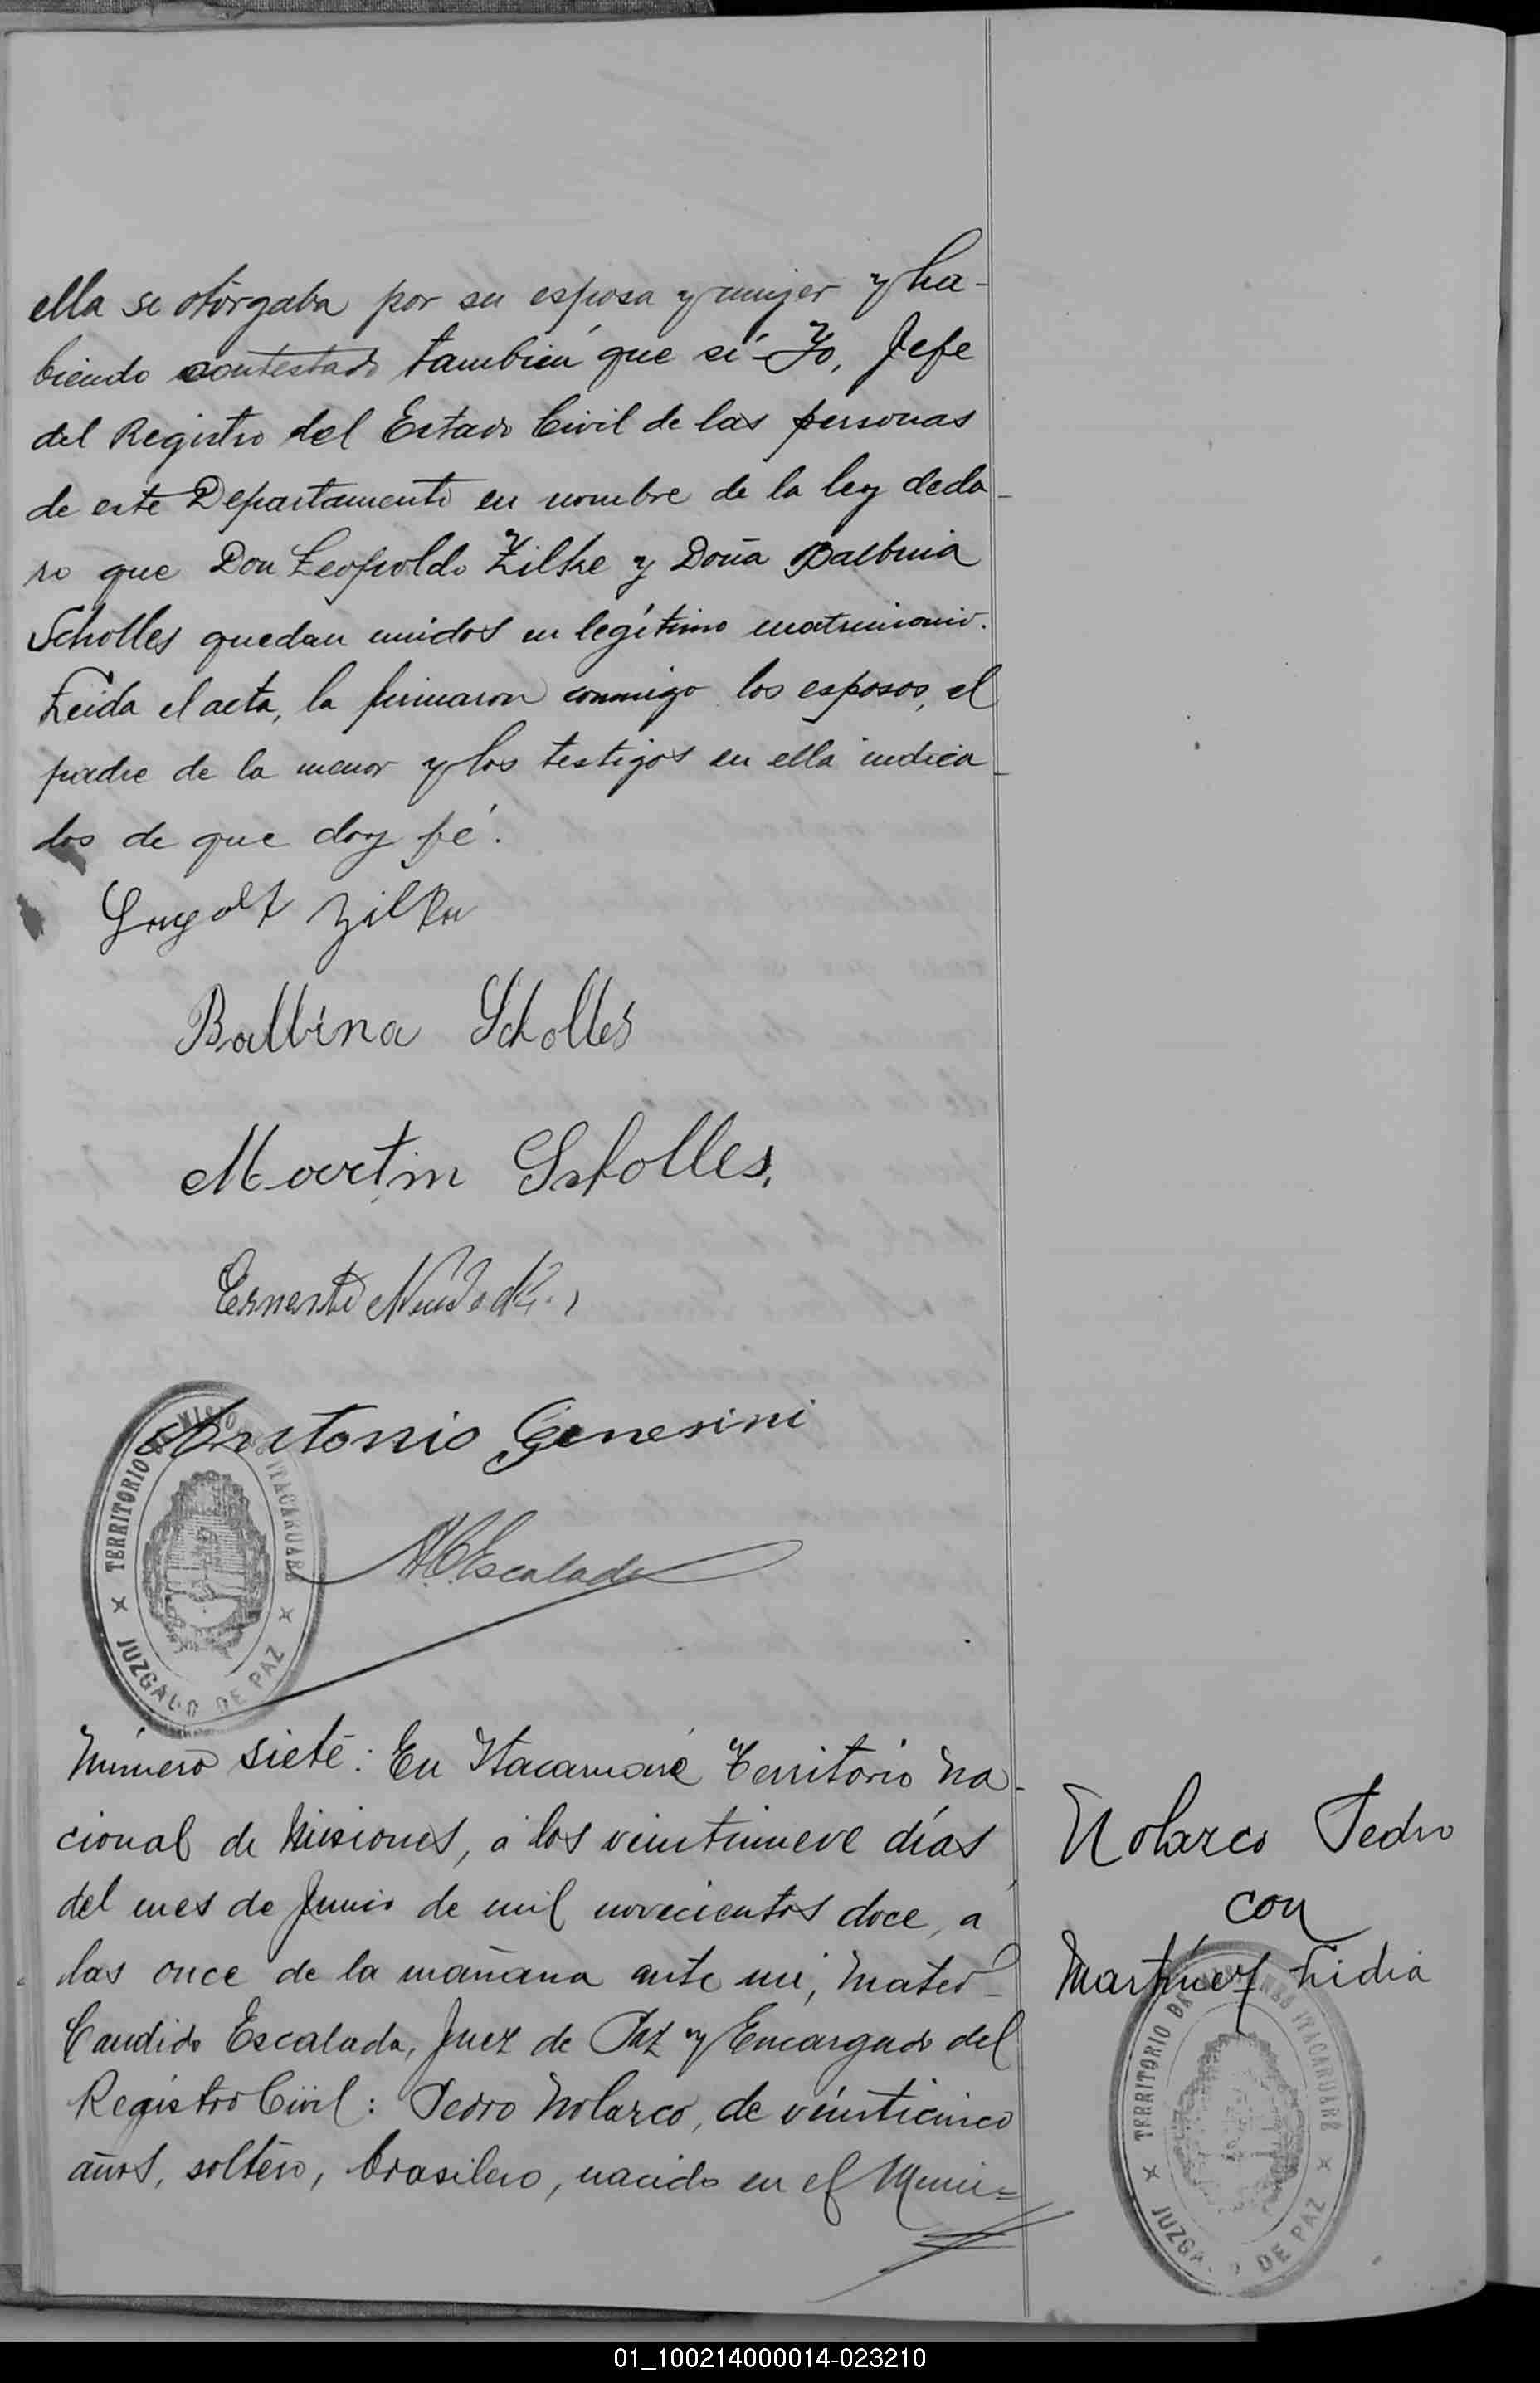 ella se otórgaba por su esposa y mujer y ha-
biendo contestado tambien que sí - Yo, Jefe
del Registro del Estado Civil de las personas
de este Departamento en nombre de la ley decla-
ro que Don Leopoldo Zilke y Doña Balbina
Scholles quedan unidos en legítimo matrimonio.
Leida el acta, la firmaron conmigo los esposos, el
padre de la menor y los testigos en ella indica-
dos de que doy fé.
Balbina Scholles
Martin Scholles,
Ernesto
Antonio Genesini
TERRITORIO DE MISIONES ITACARUARÉ
JUZGADO DE PAZ
M.C. Escalada
Número siete: En Itacaruaré Territorio Na-
cional de Misiones, á los veintinueve días
del mes de Junio de mil novecientos doce, á
las once de la mañana ante mi, Mateo
Candido Escalada, Juez de Paz y Encargado del
Registro Civil: Pedro Nolarco, de veinticinco
años, soltero, brasilero, nacido en el Muni=
Nolarco Pedro
con
Martínez Lidia
TERRITORIO DE MISIONES ITACARUARÉ
JUZGADO DE PAZ
01_100214000014-023210